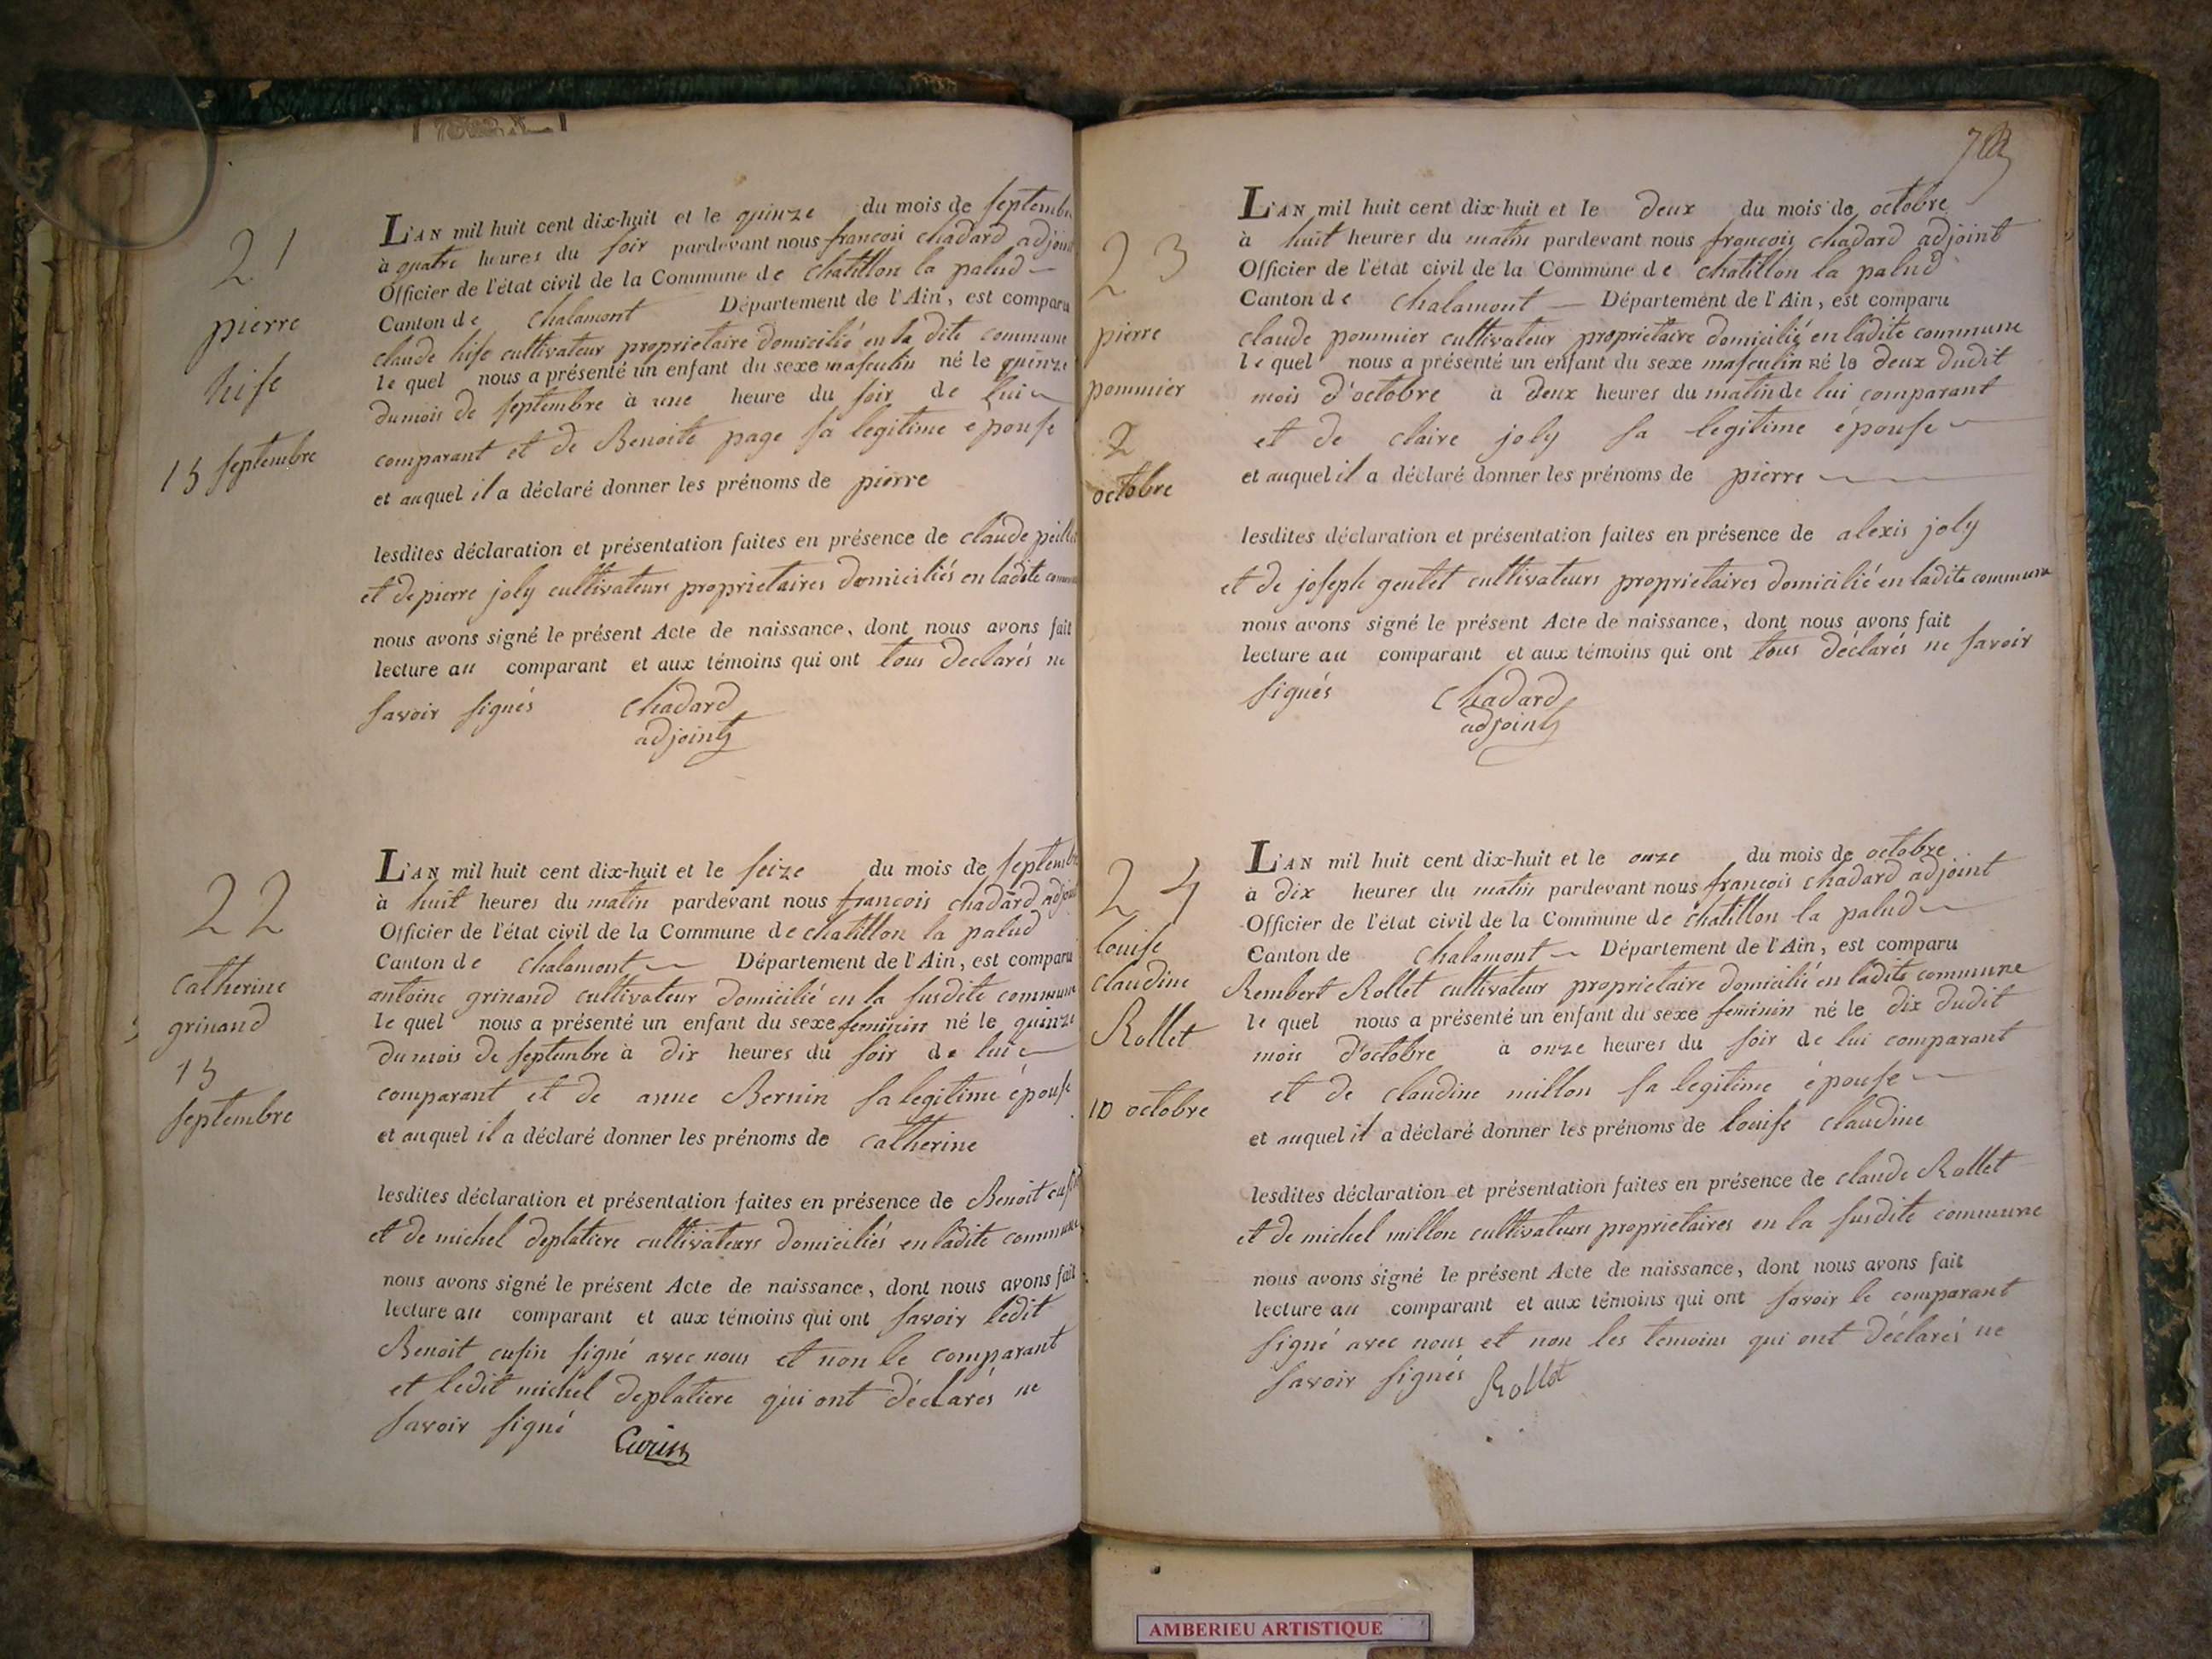 21
pierre
hise
15 septembre
L'AN mil huit cent dix-huit et le quinze du mois de septembre
à quatre heures du soir pardevant nous francois chadard adjoint
Officier de l'état civil de la Commune de chatillon la palud
Canton de chalamont Département de l'Ain, est comparu
claude hise cultivateur proprietaire domicilié en la dite commune
lequel nous a présenté un enfant du sexe masculin né le quinze
du mois de septembre à une heure du soir de lui
comparant et de Benoite page sa legitime épouse
et auquel il a déclaré donner les prénoms de pierre
lesdites déclaration et présentation faites en présence de claude
et de pierre joly cultivateurs proprietaires domiciliés en ladite commune
nous avons signé le présent Acte de naissance, dont nous avons fait
lecture au comparant et aux témoins qui ont tous declarés ne
savoir signés chadard
adjoint
22
catherine
grinand
15
septembre
L'AN mil huit cent dix-huit et le seize du mois de septembre
à huit heures du matin pardevant nous francois chadard adjoint
Officier de l'état civil de la Commune de chatillon la palud
Canton de chalamont Département de l'Ain, est comparu
antoine grinand cultivateur domicilié en la susdite commune
lequel nous a présenté un enfant du sexe feminin né le quinze
du mois de septembre à dix heures du soir de lui
comparant et de anne Bernin sa legitime épouse
et auquel il a déclaré donner les prénoms de catherine
lesdites déclaration et présentation faites en présence de Benoit
et de michel deplatiere cultivateurs domiciliés en ladite commune
nous avons signé le présent Acte de naissance, dont nous avons fait
lecture au comparant et aux témoins qui ont savoir ledit
Benoit cusin signé avec nous et non le comparant
et ledit michel deplatiere qui ont déclarés ne
savoir signé
23
pierre
pommier
2
octobre
L'AN mil huit cent dix-huit et le deux du mois de octobre
à huit heures du matin pardevant nous francois chadard adjoint
Officier de l'état civil de la Commune de chatillon la palud
Canton de chalamont Département de l'Ain, est comparu
claude pommier cultivateur proprietaire domicilié en ladite commune
lequel nous a présenté un enfant du sexe masculin né le deux dudit
mois d'octobre à deux heures du matin de lui comparant
et de claire joly sa legitime épouse
et auquel il a déclaré donner les prénoms de pierre
lesdites déclaration et présentation faites en présence de alexis joly
et de joseph gentet cultivateurs proprietaires domicilié en ladite commune
nous avons signé le présent Acte de naissance, dont nous avons fait
lecture au comparant et aux témoins qui ont tous déclarés ne savoir
signés chadard
adjoint
24
louise
claudine
Rollet
10 octobre
L'AN mil huit cent dix-huit et le onze du mois de octobre
à dix heures du matin pardevant nous francois chadard adjoint
Officier de l'état civil de la Commune de chatillon la palud
Canton de chalamont Département de l'Ain, est comparu
Rembert Rollet cultivateur proprietaire domicilié en ladite commune
lequel nous a présenté un enfant du sexe feminin né le dix dudit
mois d'octobre à onze heures du soir de lui comparant
et de claudine millon sa legitime épouse
et auquel il a déclaré donner les prénoms de louise claudine
lesdites déclaration et présentation faites en présence de claude Rollet
et de michel millon cultivateurs proprietaires en la susdite commune
nous avons signé le présent Acte de naissance, dont nous avons fait
lecture au comparant et aux témoins qui ont savoir le comparant
signé avec nous et non les temoins qui ont déclarés ne
savoir signés Rollet
AMBERIEU ARTISTIQUE